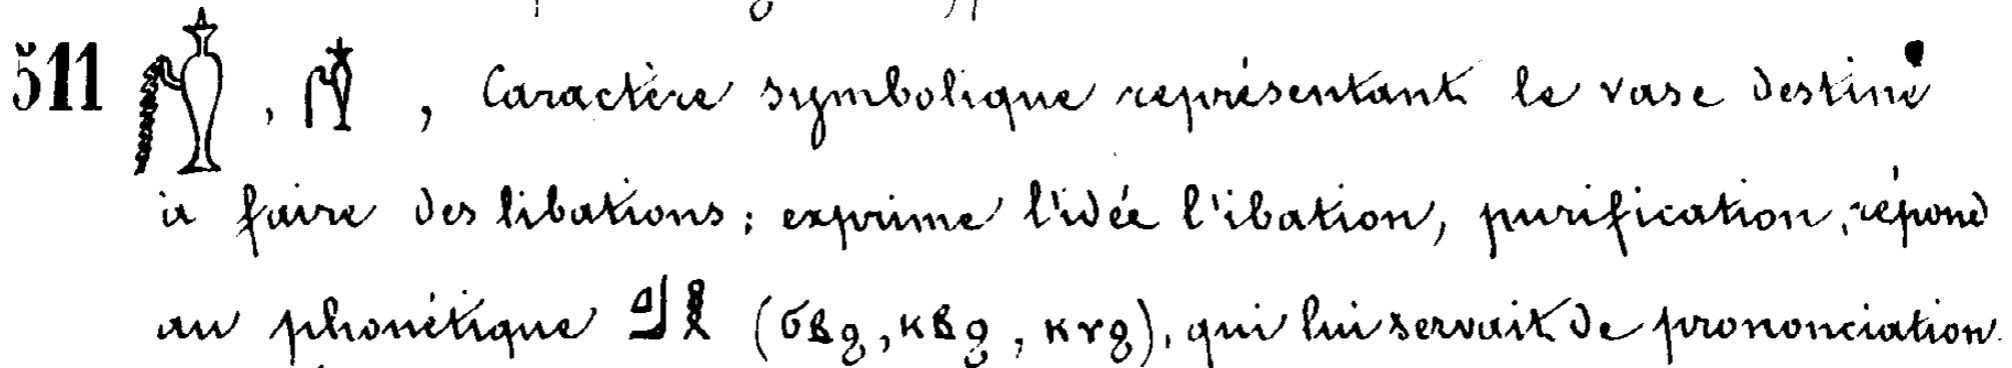 511 𓏂, 𓏂, Caractère symbolique représentant le vase destiné
à faire des libations; exprime l'idée l'ibation, purification, répond
au phonétique 𓈎𓃀𓎛 (ϭⲃϩ, ⲕⲃϩ, ⲕⲩϩ), qui lui servait de prononciation.